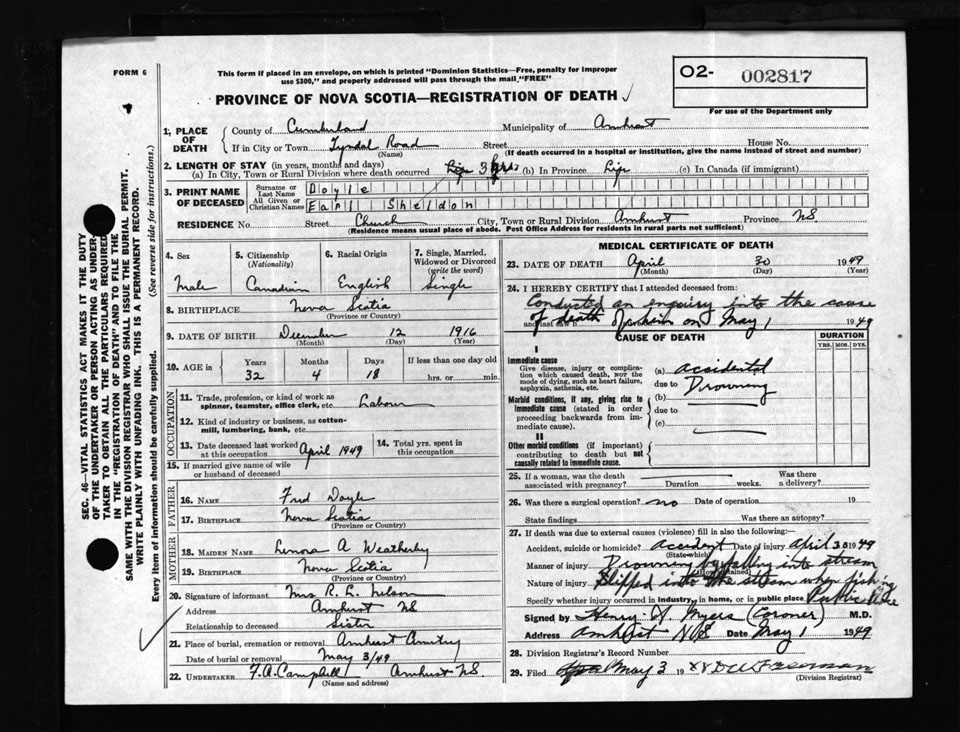 FORM 6
This form if placed in an envelope, on which is printed "Dominion Statistics—Free, penalty for improper
use $300," and properly addressed will pass through the mail, "FREE"
O2- 002817
For use of the Department only
PROVINCE OF NOVA SCOTIA—REGISTRATION OF DEATH ✓
1, PLACE OF DEATH
County of Cumberland Municipality of Amherst
If in City or Town Tyndal Road Street House No.
(Name) (If death occurred in a hospital or institution, give the name instead of street and number)
2. LENGTH OF STAY (in years, months and days)
(a) In City, Town or Rural Division where death occurred Life 32 (b) In Province Life (c) In Canada (if immigrant)
3. PRINT NAME OF DECEASED
Surname or Last Name Doyle
All Given or Christian Names Earl Sheldon
RESIDENCE No. Street Church City, Town or Rural Division Amherst Province NS
(Residence means usual place of abode. Post Office Address for residents in rural parts not sufficient)
4. Sex Male
5. Citizenship (Nationality) Canadian
6. Racial Origin English
7. Single, Married, Widowed or Divorced (write the word) Single
8. BIRTHPLACE Nova Scotia
(Province or Country)
9. DATE OF BIRTH December 12 1916
(Month) (Day) (Year)
10. AGE in Years 32 Months 4 Days 18 If less than one day old hrs. or min.
OCCUPATION
11. Trade, profession, or kind of work as spinner, teamster, office clerk, etc. Labour
12. Kind of industry or business, as cotton-mill, lumbering, bank, etc.
13. Date deceased last worked at this occupation April 1949
14. Total yrs. spent in this occupation
15. If married give name of wife or husband of deceased
FATHER
16. NAME Fred Doyle
17. BIRTHPLACE Nova Scotia
(Province or Country)
MOTHER
18. MAIDEN NAME Lenora A Weatherby
19. BIRTHPLACE Nova Scotia
(Province or Country)
20. Signature of informant Mrs R. L. Nelson
Address Amherst NS
Relationship to deceased Sister
21. Place of burial, cremation or removal Amherst
Date of burial or removal May 3/49
22. UNDERTAKER F. A. Campbell Amherst NS
(Name and address)
MEDICAL CERTIFICATE OF DEATH
23. DATE OF DEATH April 30 1949
(Month) (Day) (Year)
24. I HEREBY CERTIFY that I attended deceased from:
Conducted an enquiry into the cause
of death on May 1 1949
and last saw h
CAUSE OF DEATH DURATION
YRS. MOS. DYS.
I
Immediate cause
Give disease, injury or complication which caused death, NOT the mode of dying, such as heart failure, asphyxia, asthenia, etc.
(a) Accidental
due to Drowning
Morbid conditions, if any, giving rise to immediate cause (stated in order proceeding backwards from immediate cause).
(b)
due to
(c)
II
Other morbid conditions (if important) contributing to death but not causally related to immediate cause.
25. If a woman, was the death associated with pregnancy? Duration weeks. Was there a delivery?
26. Was there a surgical operation? no Date of operation 19
State findings Was there an autopsy?
27. If death was due to external causes (violence) fill in also the following:
Accident, suicide or homicide? Accident Date of injury April 30 1949
(State which)
Manner of injury Drowning by falling into stream
(How sustained)
Nature of injury Slipped into the stream when fishing
Specify whether injury occurred in industry, in home, or in public place Public Place
Signed by Henry A Myers (Coroner) M.D.
Address Amherst NS Date May 1 1949
28. Division Registrar's Record Number
29. Filed May 3 19 Freeman
(Division Registrar)
SEC. 46—VITAL STATISTICS ACT MAKES IT THE DUTY
OF THE UNDERTAKER OR PERSON ACTING AS UNDER-
TAKER TO OBTAIN ALL THE PARTICULARS REQUIRED
IN THE "REGISTRATION OF DEATH" AND TO FILE THE
SAME WITH THE DIVISION REGISTRAR WHO SHALL ISSUE THE BURIAL PERMIT.
WRITE PLAINLY WITH UNFADING INK. THIS IS A PERMANENT RECORD.
Every item of information should be carefully supplied. (See reverse side for instructions.)